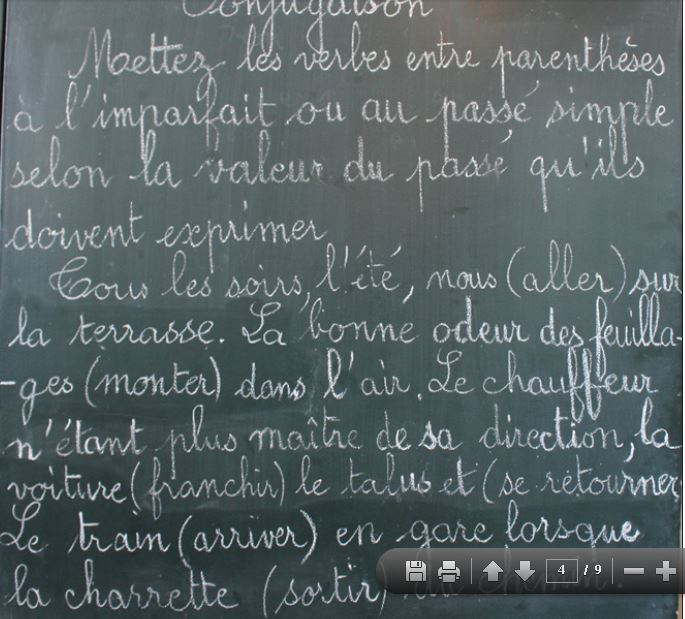 Conjugaison
Mettez les verbes entre parenthèses
à l'imparfait ou au passé simple
selon la valeur du passé qu'ils
doivent exprimer
Tous les soirs, l'été, nous (aller) sur
la terrasse. La bonne odeur des feuilla-
-ges (monter) dans l'air. Le chauffeur
n'étant plus maître de sa direction, la
voiture (franchir) le talus et (se retourner
Le train (arriver) en gare lorsque
la charrette (sortir) du chemin.
4 / 9